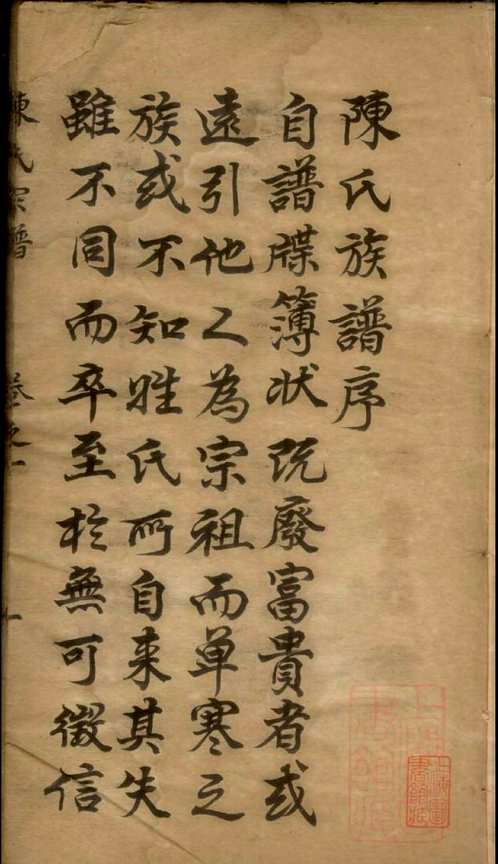 陳氏族譜序
自譜牒簿狀既廢富貴者或
遠引他人為宗祖而單寒之
族或不知姓氏所自来其失
雖不同而卒至於無可徵信
陳氏宗譜
卷之一
一
上海圖書館藏